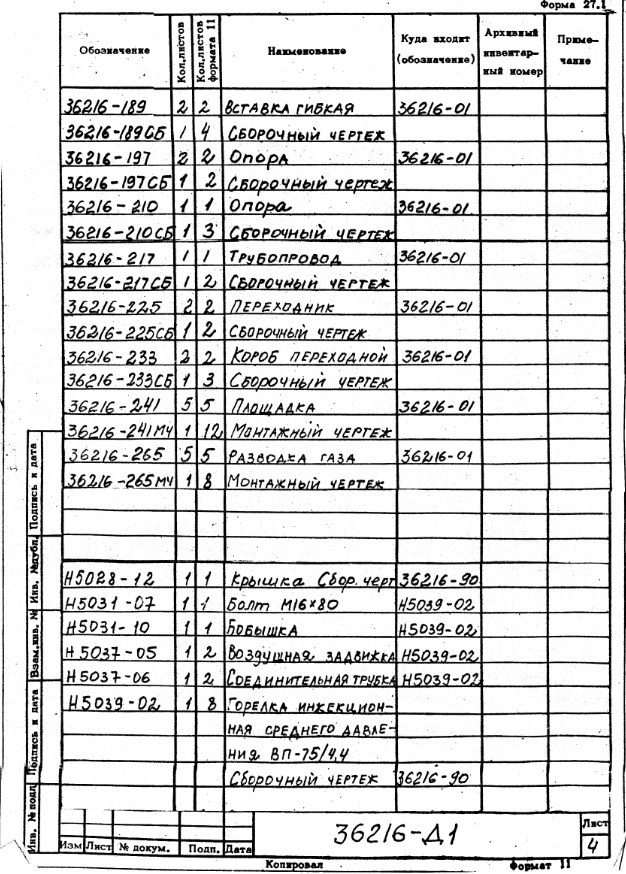 Форма 27.1
Обозначение Кол.листов Кол.листов формата 11 Наименование Куда входит (обозначение) Архивный инвентар-ный номер Приме-чание
36216-189 2 2 ВСТАВКА ГИБКАЯ 36216-01
36216-189СБ 1 4 СБОРОЧНЫЙ ЧЕРТЕЖ
36216-197 2 2 ОПОРА 36216-01
36216-197СБ 1 2 СБОРОЧНЫЙ ЧЕРТЕЖ
36216-210 1 1 ОПОРА 36216-01
36216-210СБ 1 3 СБОРОЧНЫЙ ЧЕРТЕЖ
36216-217 1 1 ТРУБОПРОВОД 36216-01
36216-217СБ 1 2 СБОРОЧНЫЙ ЧЕРТЕЖ
36216-225 2 2 ПЕРЕХОДНИК 36216-01
36216-225СБ 1 2 СБОРОЧНЫЙ ЧЕРТЕЖ
36216-233 2 2 КОРОБ ПЕРЕХОДНОЙ 36216-01
36216-233СБ 1 3 СБОРОЧНЫЙ ЧЕРТЕЖ
36216-241 5 5 ПЛОЩАДКА 36216-01
36216-241МЧ 1 12 МОНТАЖНЫЙ ЧЕРТЕЖ
36216-265 5 5 РАЗВОДКА ГАЗА 36216-01
36216-265МЧ 1 8 МОНТАЖНЫЙ ЧЕРТЕЖ
Н5028-12 1 1 КРЫШКА СБОР. ЧЕРТ 36216-90
Н5031-07 1 1 БОЛТ М16×80 Н5039-02
Н5031-10 1 1 БОБЫШКА Н5039-02
Н5037-05 1 2 ВОЗДУШНАЯ ЗАДВИЖКА Н5039-02
Н5037-06 1 2 СОЕДИНИТЕЛЬНАЯ ТРУБКА Н5039-02
Н5039-02 1 8 ГОРЕЛКА ИНЖЕКЦИОН-
НАЯ СРЕДНЕГО ДАВЛЕ-
НИЯ ВП-75/4,4
СБОРОЧНЫЙ ЧЕРТЕЖ 36216-90
Инв. № подл. Подпись и дата Взам.инв. № Инв. №дубл. Подпись и дата
36216-Д1
Лист
4
Изм Лист № докум. Подп. Дата
Копировал Формат 11